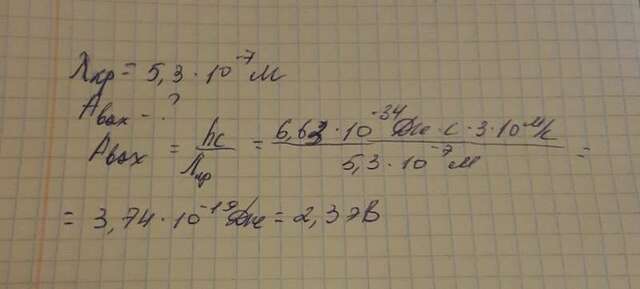 λкр = 5,3 · 10⁻⁷ м
Aвых - ?
Aвых = hc/λкр = 6,63 · 10⁻³⁴ Дж · с · 3 · 10 м/с / 5,3 · 10⁻⁷ м =
= 3,74 · 10⁻¹⁹ Дж = 2,3 эВ